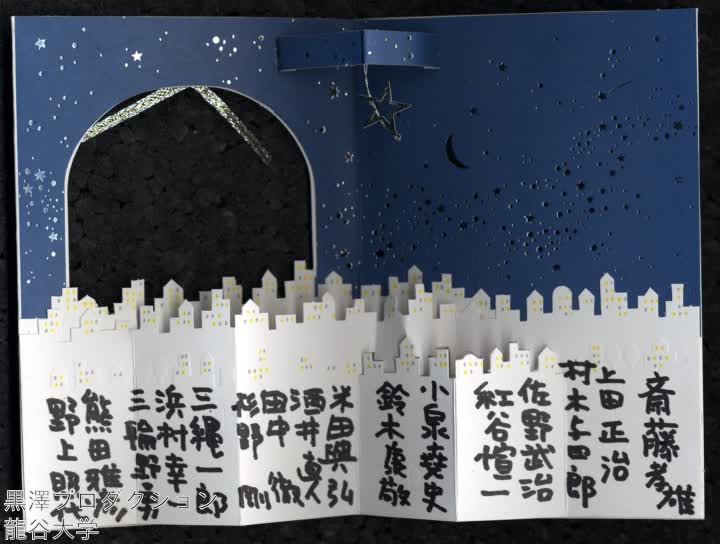 斎藤孝雄
上田正治
村木与四郎
佐野武治
紅谷愃一
小泉堯史
鈴木康敬
米田興弘
酒井直人
田中徹
杉野剛
三縄一郎
浜村幸一
三輪野勇
熊田雅彦
野上照代
黒澤プロダクション
龍谷大学